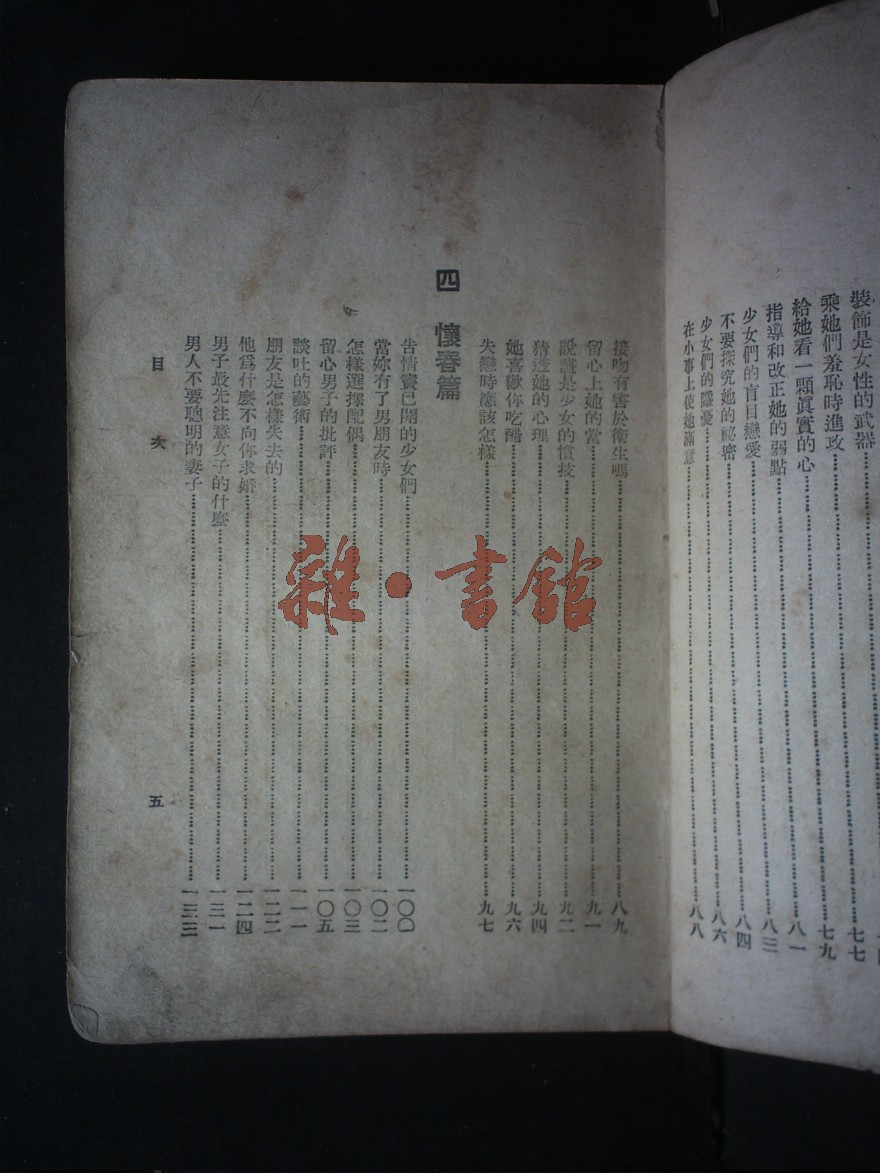 裝飾是女性的武器……七七
乘她們羞恥時進攻……七九
給她看一顆眞實的心……八一
指導和改正她的弱點……八三
少女們的盲目戀愛……八四
不要探究她的祕密……八六
少女們的隱憂……八八
在小事上使她滿意……八八
接吻有害於衛生嗎……八九
留心上她的當……九一
說謊是少女的慣技……九二
猜透她的心理……九四
她喜歡你吃醋……九六
失戀時應該怎樣……九七
四 懷春篇
告情竇已開的少女們……一〇〇
當妳有了男朋友時……一〇二
怎樣選擇配偶……一〇三
留心男子的批評……一〇五
談吐的藝術……一一一
朋友是怎樣失去的……一二二
他爲什麼不向你求婚……一二四
男子最先注意女子的什麼……一三一
男人不要聰明的妻子……一三三
目次
五
雜·書館